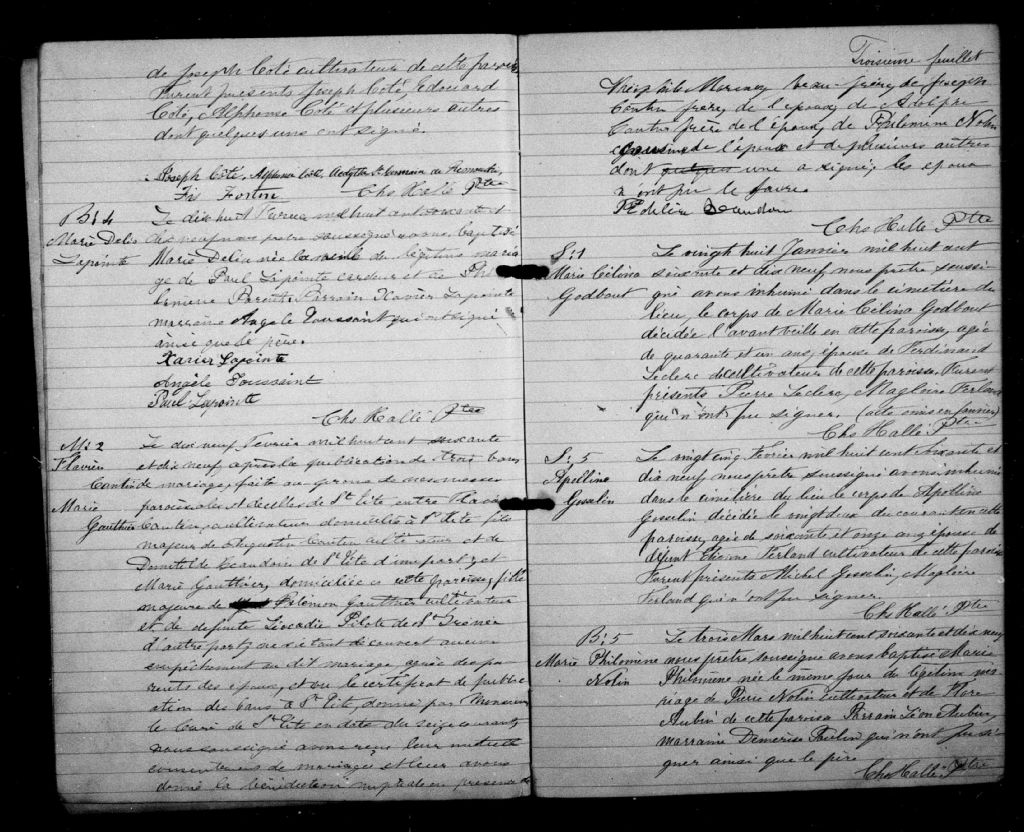 de Joseph Coté cultivateur de cette paroisse
Furent présents Joseph Coté, Edouard
Coté, Alphonse Coté et plusieurs autres
dont quelques uns ont signé.
Joseph Côté, Alphonse Côté,
Frs Fortin
Chs Hallé Ptre
B: 4
Marie Delia
Lapointe
Le dix huit Fevrier mil huit cent soixante et
dix neuf nous pretre soussigné avons baptisé
Marie Delia née la veille de légitime maria
ge de Paul Lapointe cardeur et de Phi
Parrain Xavier Lapointe
marraine Angele Toussaint qui ont signé
ainsi que le père.
Xavier Lapointe
Angèle Toussaint
Paul Lapointe
Chs Hallé Ptre
M: 2
Flavien
Cantin
Marie
Gauthier
Le dix neuf Fevrier mil huit cent soixante
et dix neuf après la publication de trois bans
de mariage, faite au prone de nos messes
paroissiales et de celles de St Tite entre Flavien
Cantin, cultivateur domicilié à St Tite fils
majeur de Augustin Cantin cultivateur et de
Beaudoin de St Tite d'une part, et
Marie Gauthier, domiciliée en cette paroisse, fille
majeure de Philémon Gauthier cultivateur
et de defunte Léocadie Pilote de St Irénée
d'autre part, ne s'étant découvert aucun
empêchement au dit mariage,
rents des époux, et vu le certificat de public
ation des bans à St Tite, donné par Monsieur
le Curé de St Tite en date du seize courant,
nous soussigné avons reçu leur mutuel
consentement de mariage et leur avons
donné la bénédiction nuptiale en presence de
Troisième feuillet
beau-frère, de Joseph
Cantin frère, de l'époux, de
Cantin frère de l'époux, de Philomène Nolin
cousine de l'époux et de plusieurs autres
dont quelques une a signé, les époux
n'ont pu le faire.
Chs Hallé Ptre
S: 1
Marie Célina
Godbout
Le vingt huit Janvier mil huit cent
soixante et dix neuf nous prêtre soussi
gné avons inhumé dans le cimetière du
lieu, le corps de Marie Célina Godbout
décidée l'avant veille en cette paroisse, agée
de quarante et un ans, épouse de Ferdinand
Leclerc cultivateur de cette paroisse. Furent
présents Pierre Leclerc, Magloire Ferland
qui n'ont pu signer. (acte omis en Janvier)
Chs Hallé Ptre
S: 5
Apolline
Gosselin
Le vingt cinq Fevrier mil huit cent soixante et
dix neuf nous prêtre soussigné avons inhumé
dans le cimetière du lieu le corps de Apolline
Gosselin décidée le vingt deux du courant en cette
paroisse, agée de soixante et onze ans, épouse de
défunt Etienne Ferland cultivateur de cette paroisse
Furent présents Michel Gosselin, Magloire
Ferland qui n'ont pu signer.
Chs Hallé Ptre
B: 5
Marie Philomène
Nolin
Le trois Mars mil huit cent soixante et dix neuf
nous prêtre soussigné avons baptisé Marie
Philomène née le même jour du légitime ma
riage de Pierre Nolin cultivateur et de
Aubin de cette paroisse Parrain Léon Aubin,
marraine Demerise Paulin qui n'ont pu si
gner ainsi que le père
Chs Hallé Ptre